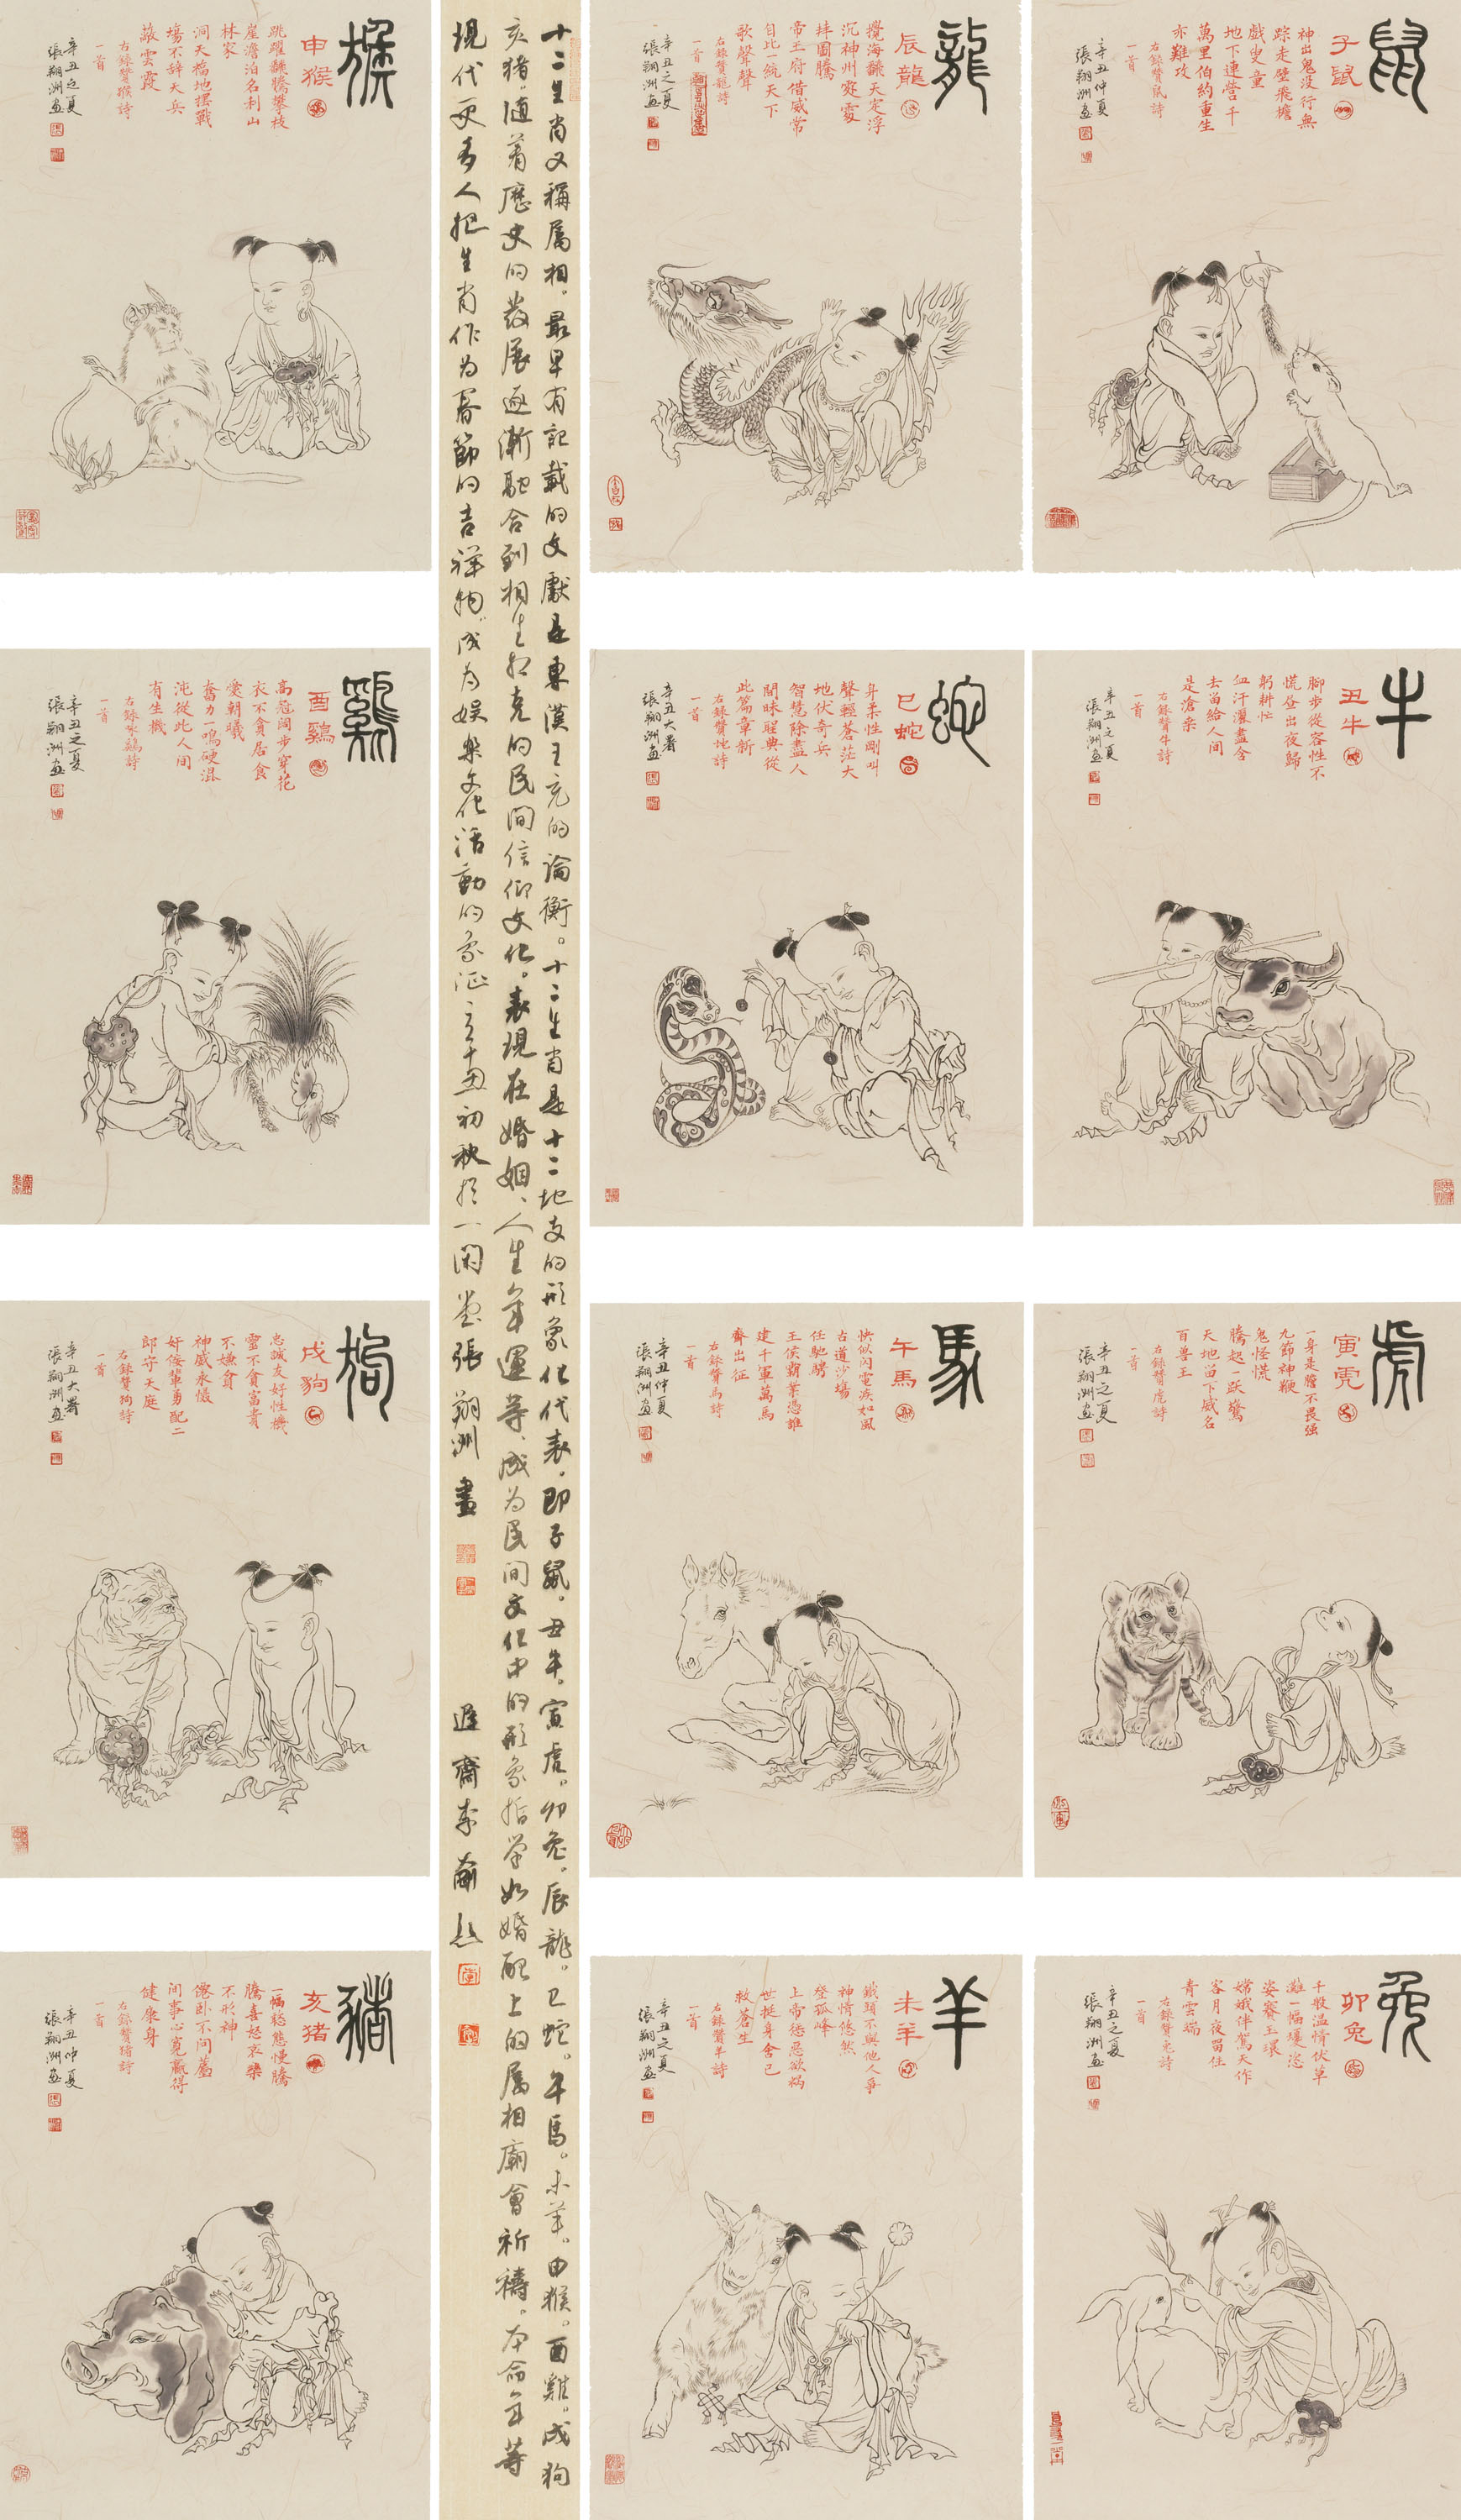 鼠
子鼠
神出鬼没行無
踪走壁飛檐
戲叟童
地下連營千
萬里伯約重生
亦難攻
右録贊鼠詩
一首
辛丑仲夏
張翔洲画
牛
丑牛
脚步從容性不
慌昼出夜歸
躬耕忙
血汗灑盡含
去留給人間
是滄桑
右録贊牛詩
一首
辛丑之夏
張翔洲画
虎
寅虎
一身是膽不畏强
九節神鞭
鬼怪慌
騰起一跃驚
天地留下威名
百兽王
右録贊虎詩
一首
辛丑之夏
張翔洲画
兔
卯兔
千般温情伏草
灘一幅嬡恣
姿賽玉環
嫦娥伴駕天作
客月夜留住
青雲端
右録贊兔詩
一首
辛丑之夏
張翔洲画
龍
辰龍
攪海翻天定浮
沉神州寇霎
拜圖騰
帝王府借威常
自比一統天下
歌聲聲
右録贊龍詩
一首
辛丑之夏
張翔洲画
蛇
巳蛇
身柔性剛叫
聲輕蒼茫大
地伏奇兵
智慧除盡人
間昧聖典從
此篇章新
右録贊蛇詩
一首
辛丑大暑
張翔洲画
馬
午馬
快似闪電疾如風
古道沙場
任馳騁
王侯霸業憑誰
建千軍萬馬
齊出征
右録贊馬詩
一首
辛丑仲夏
張翔洲画
羊
未羊
鐵頭不與他人爭
神情悠然
登孤峰
上帝惩惡欲祸
世挺身舍己
救蒼生
右録贊羊詩
一首
辛丑之夏
張翔洲画
十二生肖又稱属相，最早有記載的文獻是東漢王充的論衡。十二生肖是十二地支的形象化代表，即子鼠。丑牛。寅虎。卯兔。辰龍。巳蛇。午馬。未羊。申猴。酉雞。戌狗
亥猪，随着歷史的發展逐漸融合到相生相克的民間信仰文化。表現在婚姻、人生、年運等，成为民間文化中的形象哲學如婚配上的属相廟會祈禱，本命年等
現代更多人把生肖作为春節的吉祥物，成为娱樂文化活動的象征 辛丑初秋於一閑堂張翔洲畫 遲齋李
猴
申猴
跳躍翻騰攀枝
崖澹泊名利山
林家
洞天福地摆戰
場不辞天兵
敲雲霞
右録贊猴詩
一首
辛丑之夏
張翔洲画
鷄
酉鷄
高冠闊步穿花
衣不貪居食
愛朝曦
奮力一鳴破混
沌從此人間
有生機
右録咏鷄詩
一首
辛丑之夏
張翔洲画
狗
戌狗
忠誠友好性機
靈不貪富貴
不嫌貧
神威永懾
奸佞輩勇配二
郎守天庭
右録贊狗詩
一首
辛丑大暑
張翔洲画
豬
亥猪
一幅憨態慢騰
騰喜怒哀樂
不形神
傯卧不问薦
间事心寬赢得
健康身
右録贊豬詩
一首
辛丑仲夏
張翔洲画